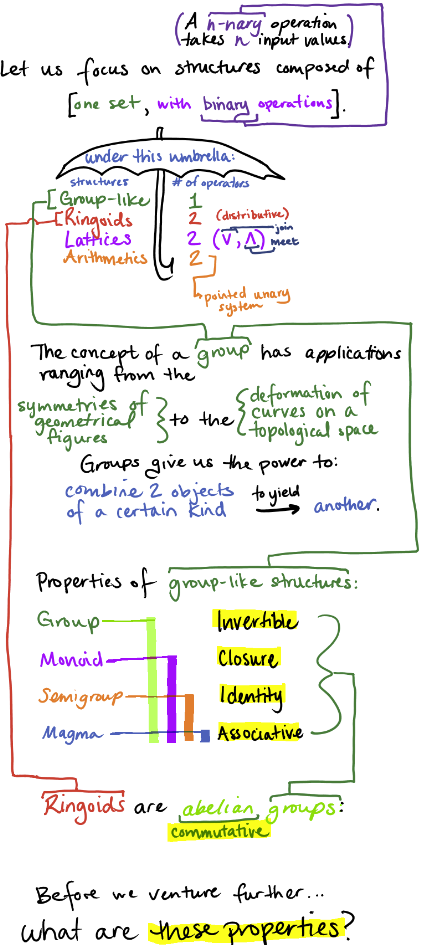 (A n-nary operation
takes n input values.)
Let us focus on structures composed of
[one set, with binary operations].
under this umbrella:
structures # of operators
Group-like 1
Ringoids 2 (distributive)
Lattices 2 (V, Λ) join meet
Arithmetics 2
pointed unary
system
The concept of a group has applications
ranging from the
symmetries of
geometrical
figures
to the
deformation of
curves on a
topological space
Groups give us the power to:
combine 2 objects
of a certain kind
to yield
another.
Properties of group-like structures:
Group Invertible
Monoid Closure
Semigroup Identity
Magma Associative
Ringoids are abelian groups:
commutative
Before we venture further...
what are these properties?